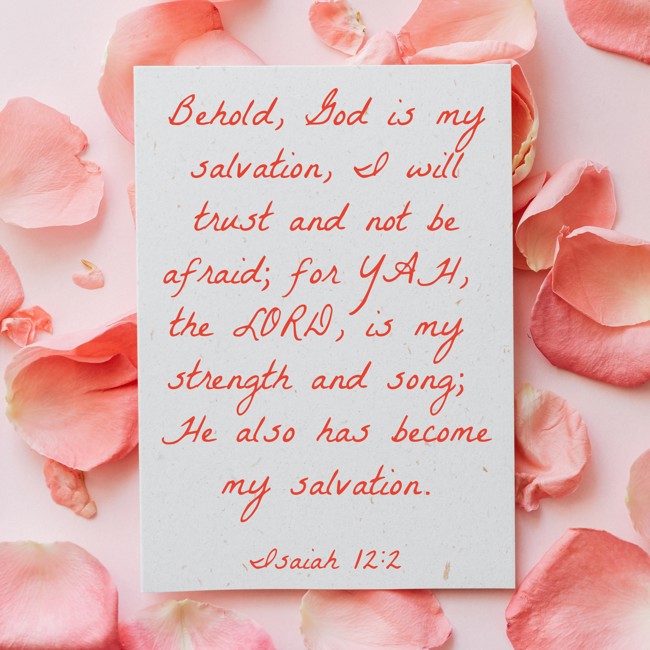 Behold, God is my
salvation, I will
trust and not be
afraid; for YAH,
the LORD, is my
strength and song;
He also has become
my salvation.
Isaiah 12:2